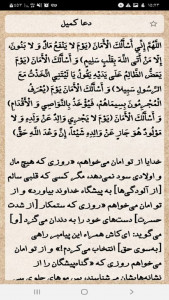 دعا کمیل
اللَّهُمَّ إِنِّي أَسْأَلُكَ الْأَمَانَ (يَوْمَ لا يَنْفَعُ مَالٌ وَ لا بَنُونَ،
إِلا مَنْ أَتَى اللَّهَ بِقَلْبٍ سَلِيمٍ) وَ أَسْأَلُكَ الْأَمَانَ (يَوْمَ
يَعَضُّ الظَّالِمُ عَلَى يَدَيْهِ يَقُولُ يَا لَيْتَنِي اتَّخَذْتُ مَعَ
الرَّسُولِ سَبِيلا) وَ أَسْأَلُكَ الْأَمَانَ (يَوْمَ يُعْرَفُ
الْمُجْرِمُونَ بِسِيمَاهُمْ، فَيُؤْخَذُ بِالنَّوَاصِي وَ الْأَقْدَامِ)
وَ أَسْأَلُكَ الْأَمَانَ (يَوْمَ لا يَجْزِي وَالِدٌ عَنْ وَلَدِهِ، وَ لا
مَوْلُودٌ هُوَ جَازٍ عَنْ وَالِدِهِ شَيْئا، إِنَّ وَعْدَ اللَّهِ حَقٌّ)
خدایا از تو امان می‌خواهم، «روزی که هیچ مال
و اولادی سود نمی‌دهد، مگر کسی که قلبی سالم
[از آلودگی‌ها] به پیشگاه خداوند بیاورد» و از
تو امان می‌خواهم «روزی که ستمکار [از شدت
حسرت] دست‌های خود را به دندان می‌گیرد [و]
می‌گوید: ای‌کاش همراه این پیامبر راهی
[به‌سوی حق] انتخاب می‌کردم!» و از تو امان
می‌خواهم «روزی که «گناه‌پیشگان را به
نشانه‌هایشان می‌شناسند، پس موهای جلوی سر